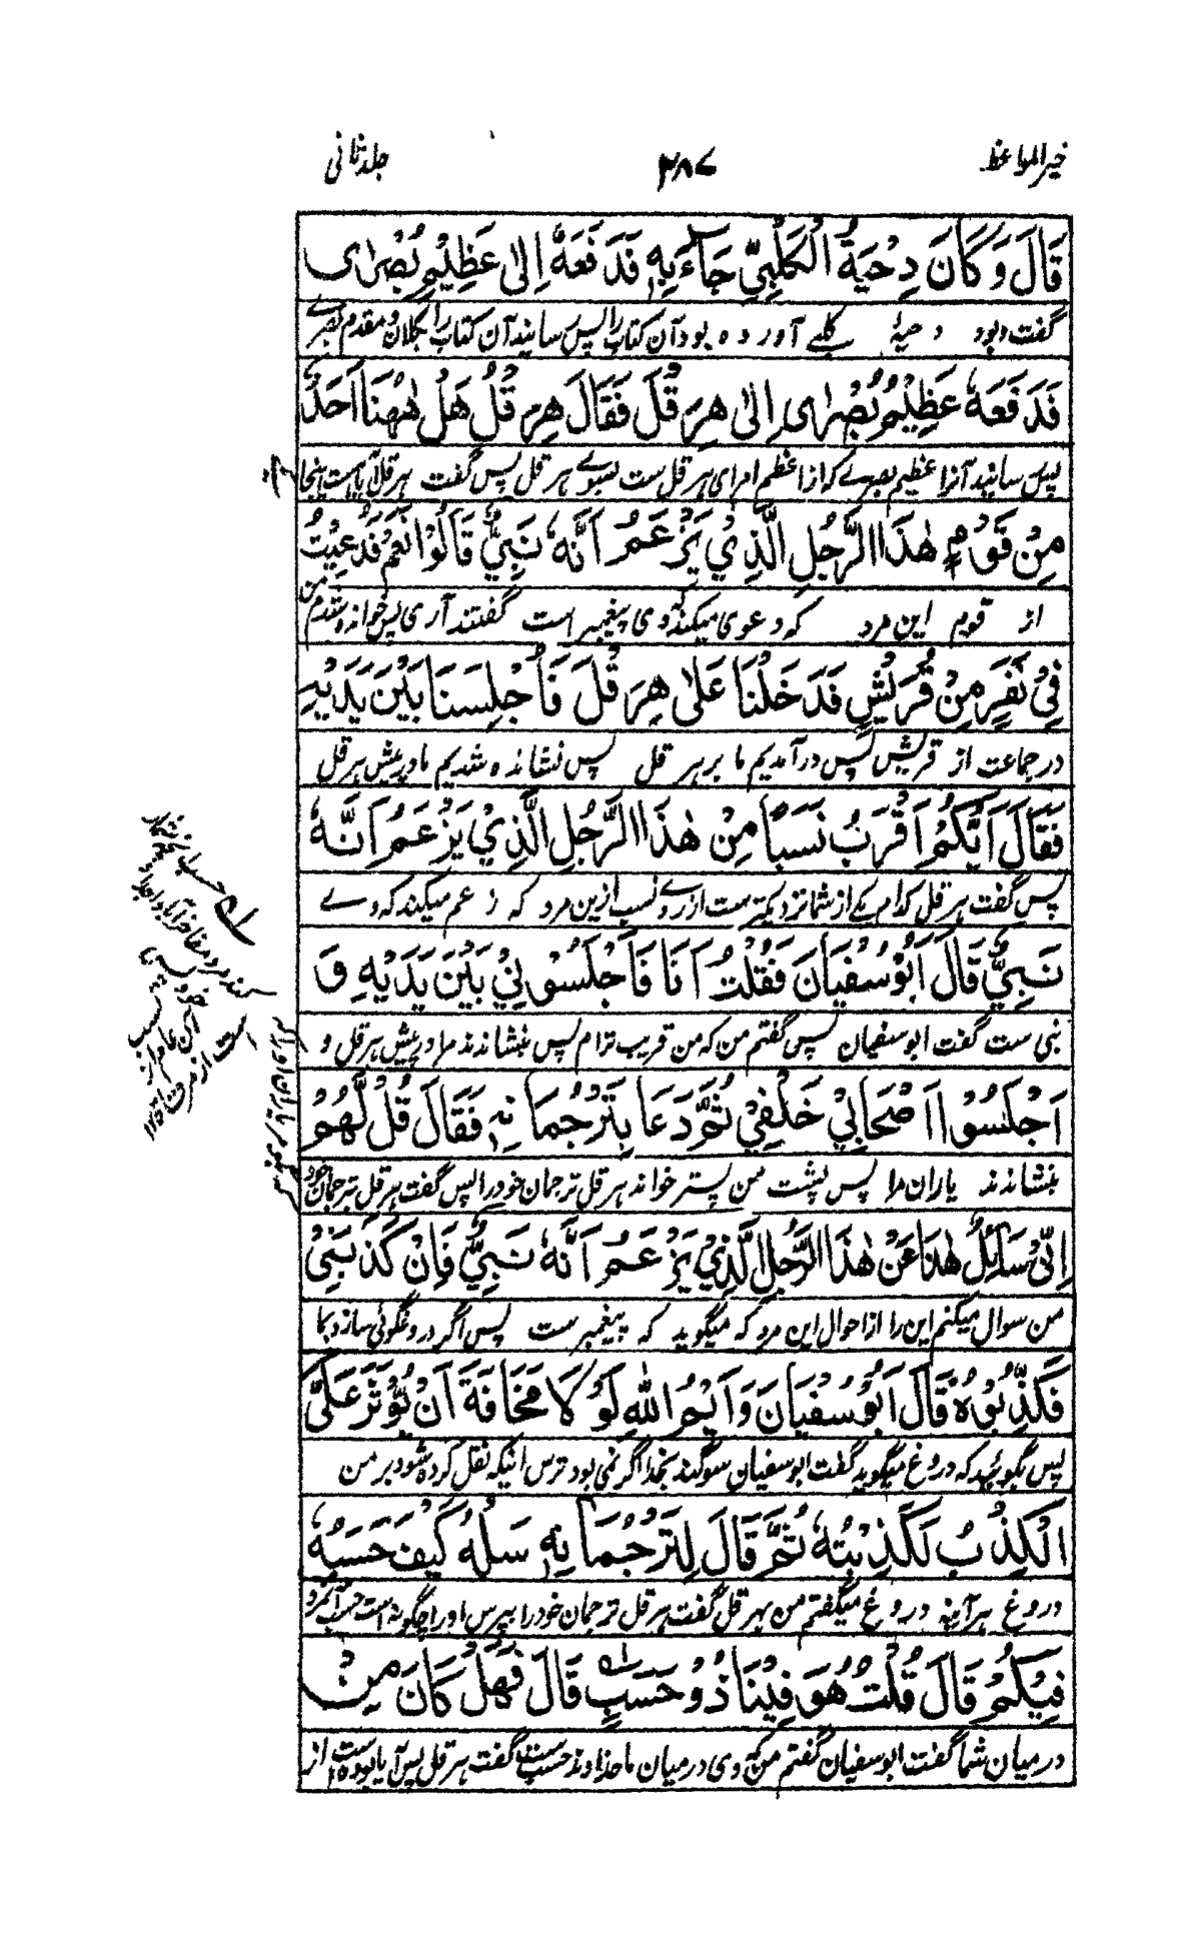 خیر المواعظ ۲۸۷ جلد ثانی
قَالَ وَكَانَ دِحْيَةُ الْكَلْبِيُّ جَاءَ بِهٖ فَدَفَعَهٗ اِلٰى عَظِيْمِ بُصْرٰى
گفت و بود دحیۂ کلبے آورده بود آن کتاب را پس رسانید آن کتاب را بکلان و مقدم بصرے
فَدَفَعَهٗ عَظِيْمُ بُصْرٰى اِلٰى هِرَقْلَ فَقَالَ هِرَقْلُ هَلْ هٰهُنَا اَحَدٌ
پس رسانید آنرا عظیم بصرے که از اعظم امرای هرقل ست بسوے هرقل پس گفت هرقل آیا هست اینجا
مِنْ قَوْمِ هٰذَا الرَّجُلِ الَّذِيْ يَزْعَمُ اَنَّهٗ نَبِيٌّ قَالُوْا نَعَمْ فَدُعِيْتُ
از قوم این مرد که دعوی میکند که وی پیغمبر است گفتند آری پس خوانده شدم من
فِيْ نَفَرٍ مِنْ قُرَيْشٍ فَدَخَلْنَا عَلٰى هِرَقْلَ فَاُجْلِسْنَا بَيْنَ يَدَيْهِ
در جماعت از قریش پس درآمدیم ما بر هرقل پس نشانده شدیم ما در پیش هرقل
فَقَالَ اَيُّكُمْ اَقْرَبُ نَسَبًا مِنْ هٰذَا الرَّجُلِ الَّذِيْ يَزْعَمُ اَنَّهٗ
پس گفت هرقل کدام یکے از شما نزدیکترست از روے نسب ازین مرد که زعم میکند که وے
نَبِيٌّ قَالَ اَبُوْ سُفْيَانَ فَقُلْتُ اَنَا فَاَجْلَسُوْنِيْ بَيْنَ يَدَيْهِ وَ
نبی ست گفت ابو سفیان پس گفتم من که من قریب ترام پس بنشاندند مرا در پیش هرقل و
اَجْلَسُوْا اَصْحَابِيْ خَلْفِيْ ثُمَّ دَعَا بِتَرْجُمَانِهٖ فَقَالَ قُلْ لَّهُمْ
بنشاندند یاران مرا پس پشت من پستر خواند هرقل ترجمان خود را پس گفت هرقل بترجمان خود
اِنِّيْ سَائِلٌ هٰذَا عَنْ هٰذَا الرَّجُلِ الَّذِيْ يَزْعَمُ اَنَّهٗ نَبِيٌّ فَاِنْ كَذَبَنِيْ
من سوال میکنم این را از احوال این مرد که میگوید که پیغمبرست پس اگر دروغگوئی سازد بما
فَكَذِّبُوْهُ قَالَ اَبُوْ سُفْيَانَ وَاَيْمُ اللّٰهِ لَوْلَا مَخَافَةَ اَنْ يُّؤْثَرَ عَلَيَّ
پس بگوئید که دروغ میگوید گفت ابو سفیان سوگند بخدا اگر نمی بود ترس اینکه نقل کرده شود بر من
الْكِذْبُ لَكَذَبْتُهٗ ثُمَّ قَالَ لِتَرْجُمَانِهٖ سَلْهُ كَيْفَ حَسَبُهٗ
دروغ هر آینه دروغ میگفتم من بهرقل گفت هرقل ترجمان خود را بپرس او را چگونه است حسب آنمرد
فِيْكُمْ قَالَ قُلْتُ هُوَ فِيْنَا ذُوْ حَسَبٍ قَالَ فَهَلْ كَانَ مِنْ
درمیان شما گفت ابو سفیان گفتم من که وی درمیان ما خداوند حسب ست گفت هرقل پس آیا بوده است از